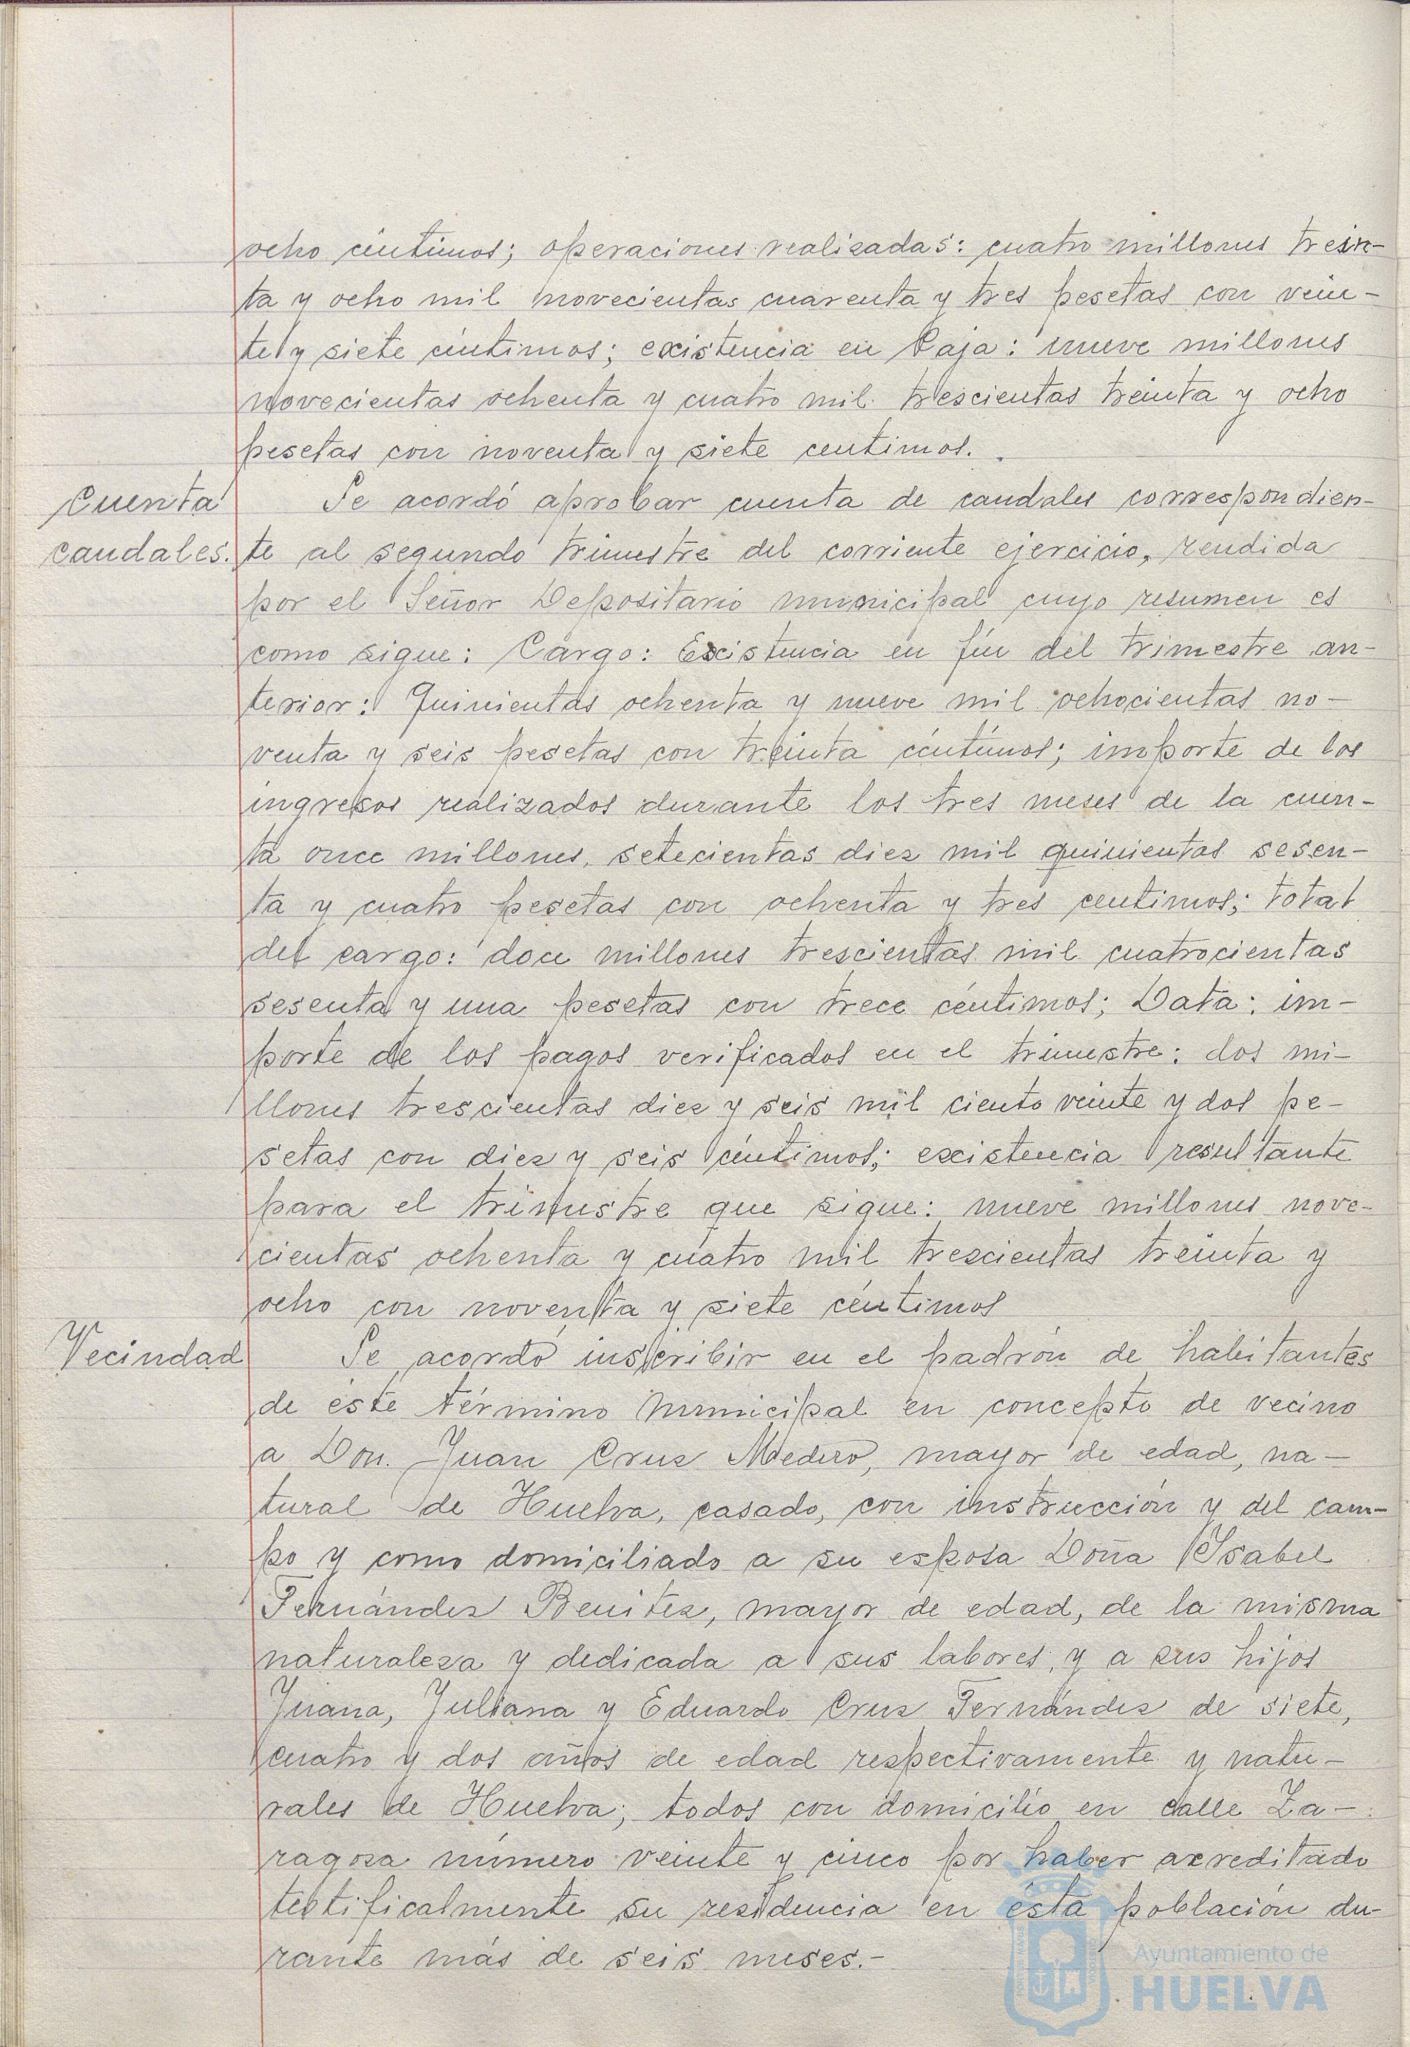 ocho céntimos; operaciones realizadas: cuatro millones trein-
ta y ocho mil novecientas cuarenta y tres pesetas con vein-
te y siete céntimos; existencia en Caja: nueve millones
novecientas ochenta y cuatro mil trescientas treinta y ocho
pesetas con noventa y siete centimos.
Cuenta
caudales.
Se acordó aprobar cuenta de caudales correspondien-
te al segundo trimestre del corriente ejercicio, rendida
por el Señor Depositario municipal cuyo resumen es
como sigue: Cargo: Existencia en fín del trimestre an-
terior: Quinientas ochenta y nueve mil ochocientas no-
venta y seis pesetas con treinta céntímos; importe de los
ingresos realizados durante los tres meses de la cuen-
ta once millones, setecientas diez mil quinientas sesen-
ta y cuatro pesetas con ochenta y tres centimos; total
del cargo: doce millones trescientas mil cuatrocientas
sesenta y una pesetas con trece céntimos; Data: im-
porte de los pagos verificados en el trimestre: dos mi-
llones trescientas diez y seis mil ciento veinte y dos pe-
setas con diez y seis céntimos; existencia resultante
para el trimestre que sigue: nueve millones nove-
cientas ochenta y cuatro mil trescientas treinta y
ocho con noventa y siete céntimos
Vecindad
Se acordó inscribir en el padrón de habitantes
de éste término municipal en concepto de vecino
a Don Juan Cruz Medero, mayor de edad, na-
tural de Huelva, casado, con instrucción y del cam-
po y como domiciliado a su esposa Doña Ysabel
Fernández Benitez, mayor de edad, de la misma
naturaleza y dedicada a sus labores, y a sus hijos
Juana, Juliana y Eduardo Cruz Fernández de siete,
cuatro y dos años de edad respectivamente y natu-
rales de Huelva; todos con domicilio en calle Za-
ragoza número veinte y cinco por haber acreditado
testificalmente su residencia en ésta población du-
rante más de seis meses.-
Ayuntamiento de
HUELVA